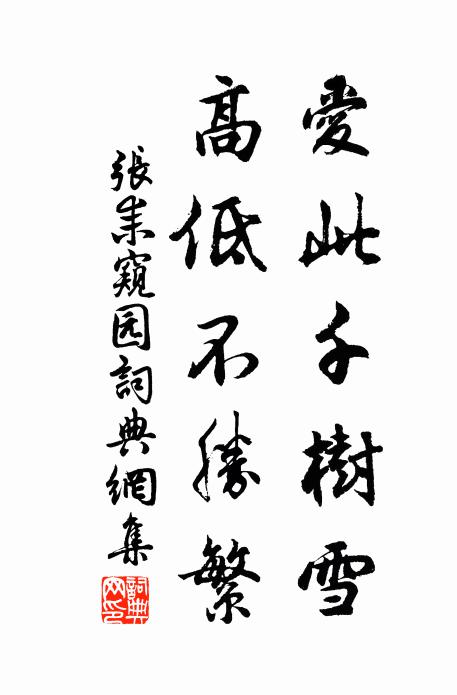 愛此千樹雪
高低不勝繁
張耒窺园詞典網集